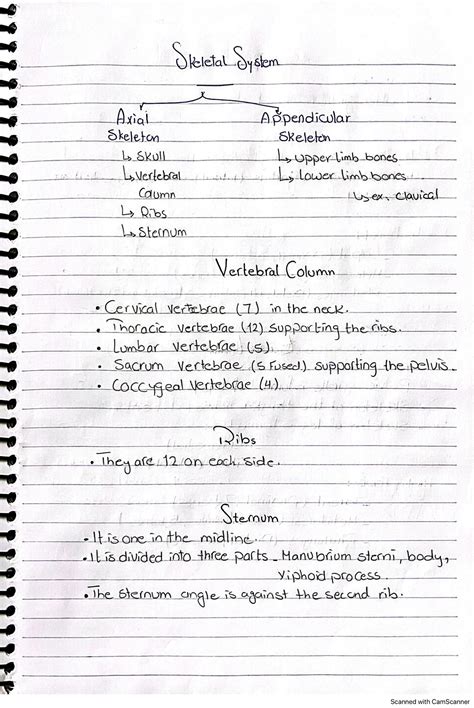 Skeletal System
Axial Appendicular
Skeleton Skeleton
↳ Skull ↳ upper limb bones
↳ vertebral ↳ lower limb bones
Column ↳ ex. clavical
↳ Ribs
↳ Sternum
Vertebral Column
• Cervical vertebrae (7) in the neck.
• Thoracic vertebrae (12) supporting the ribs.
• Lumbar vertebrae (5).
• Sacrum vertebrae (5 fused) supporting the pelvis.
• Coccygeal vertebrae (4).
Ribs
• They are 12 on each side.
Sternum
• It is one in the midline.
• It is divided into three parts - Manubrium sterni, body,
xiphoid process.
• The sternum angle is against the second rib.
Scanned with CamScanner